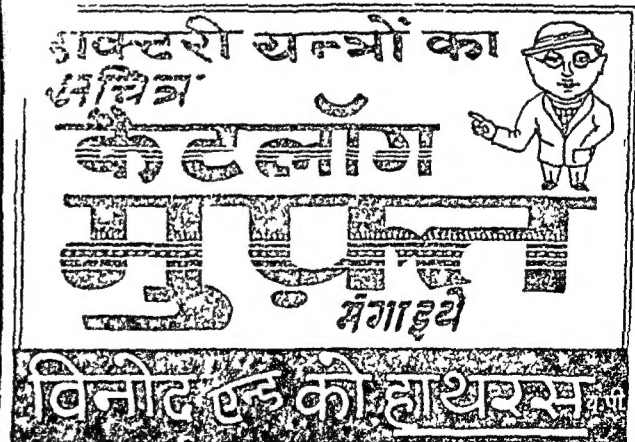 डाक्टरी यन्त्रों का
सचित्र
कैटलॉग
मुफ़्त
मंगाइये
विनोद एन्ड को हाथरस यू पी